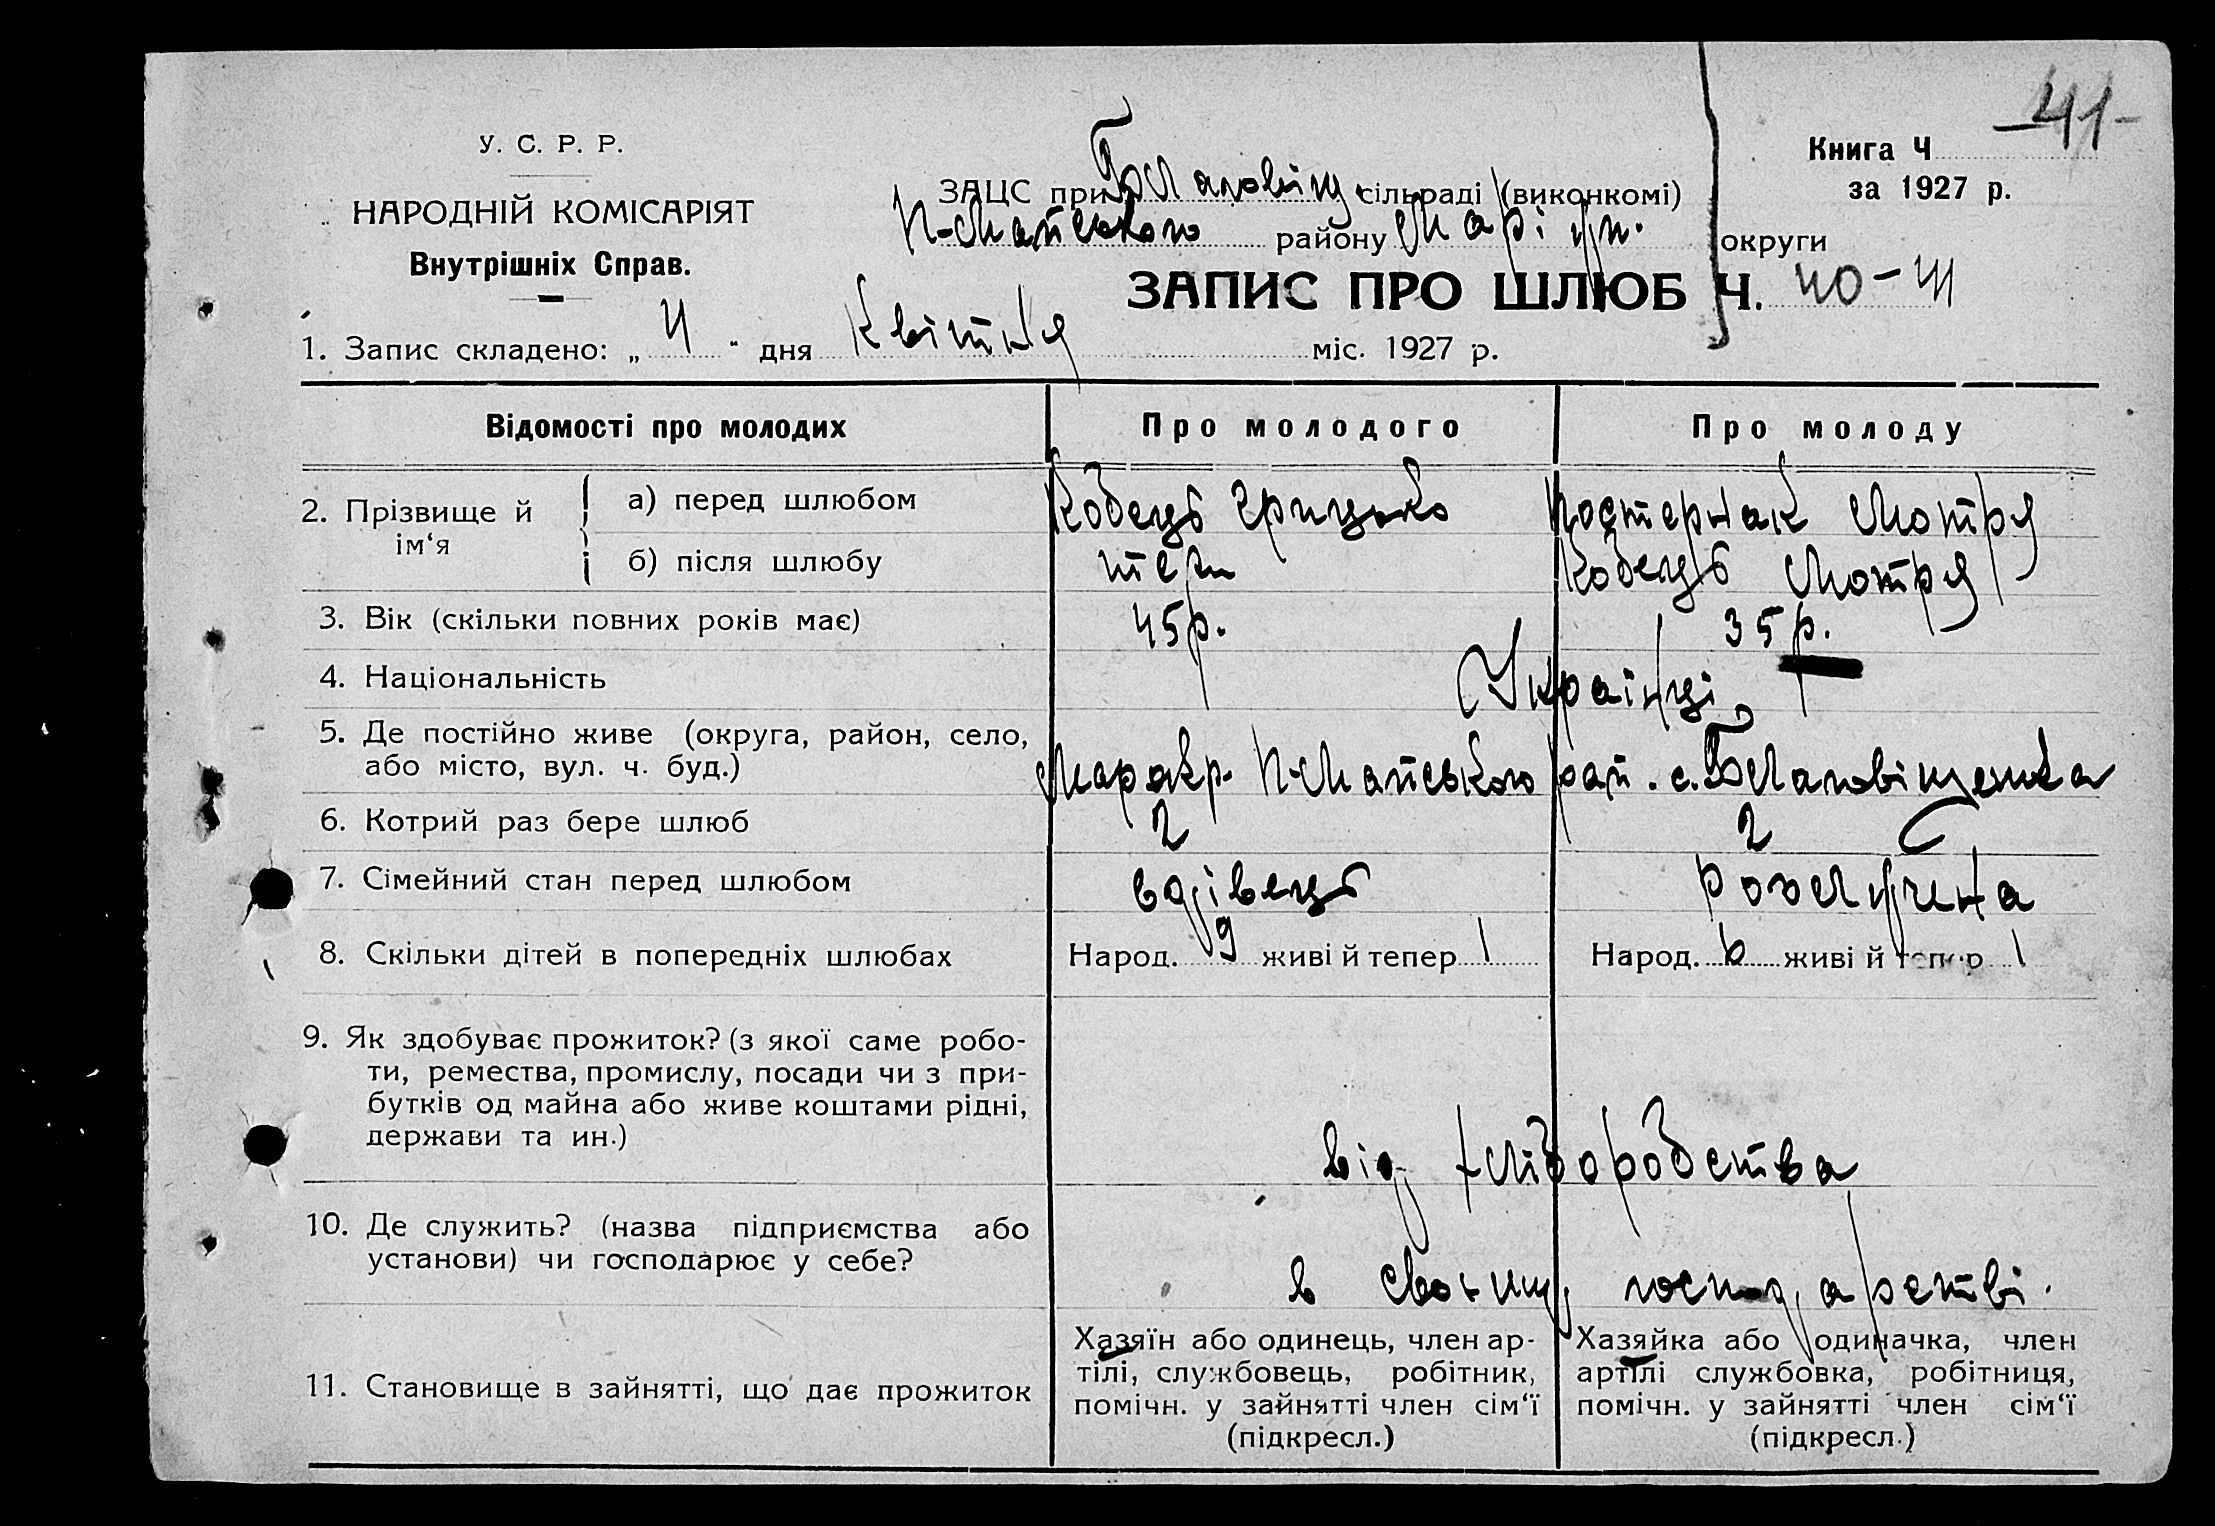 -41-
У. С. Р. Р.
НАРОДНІЙ КОМІСАРІЯТ
Внутрішніх Справ.
ЗАЦС при Благовіщ. сільраді (виконкомі)
П-Майського району Маріуп. округи
Книга Ч
за 1927 р.
ЗАПИС ПРО ШЛЮБ Ч. 40-41
1. Запис складено: „ 4 " дня Квітня міс. 1927 р.
Відомості про молодих
Про молодого
Про молоду
2. Прізвище й ім‘я
а) перед шлюбом
Кобець Грицько
Постернак Мотря
б) після шлюбу
теж
Кобець Мотря
3. Вік (скільки повних років має)
45р.
35р.
4. Національність
Українці
5. Де постійно живе (округа, район, село,
або місто, вул. ч. буд.)
Марокр. П-Майського рай. с. Благовіщенка
6. Котрий раз бере шлюб
2
2
7. Сімейний стан перед шлюбом
вдівець
розлучена
8. Скільки дітей в попередніх шлюбах
Народ. 9 живі й тепер 1
Народ. 6 живі й тепер 1
9. Як здобуває прожиток? (з якої саме робо-
ти, ремества, промислу, посади чи з при-
бутків од майна або живе коштами рідні,
держави та ин.)
від хліборобства
10. Де служить? (назва підприємства або
установи) чи господарює у себе?
в своєму господарстві.
11. Становище в зайнятті, що дає прожиток
Хазяїн або одинець, член ар-
тілі, службовець, робітник,
помічн. у зайнятті член сім‘ї
(підкресл.)
Хазяйка або одиначка, член
артілі службовка, робітниця,
помічн. у зайнятті член сім‘ї
(підкресл.)